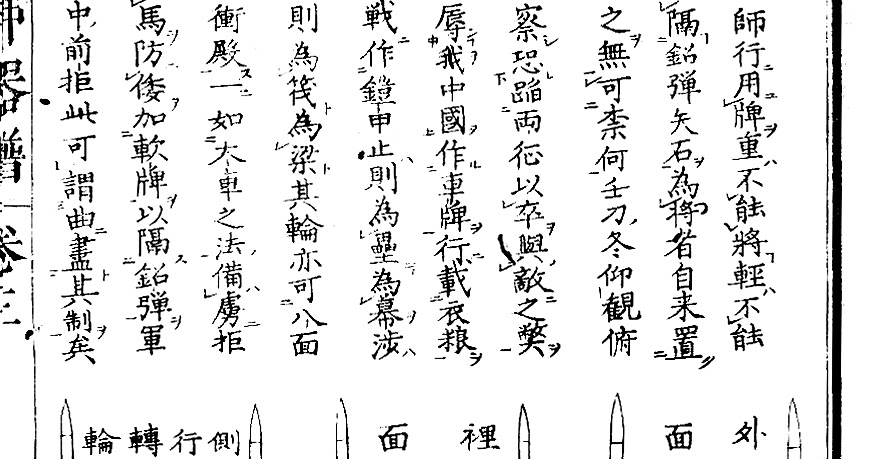 師行用牌重不能將輕不能
隔鉛彈矢石為將者自来置
之無可柰何壬刀冬仰観俯
察恐蹈両征以卒與敵之獘
辱我中國作車牌行載衣粮
戦作鎧甲止則為壘為幕渉
則為筏為梁其輪亦可八面
衝殿一如大車之法備虜拒
馬防倭加軟牌以隔鉛彈軍
中前拒此可謂曲盡其制矣
外面
裡面
側行轉輪
器譜卷三